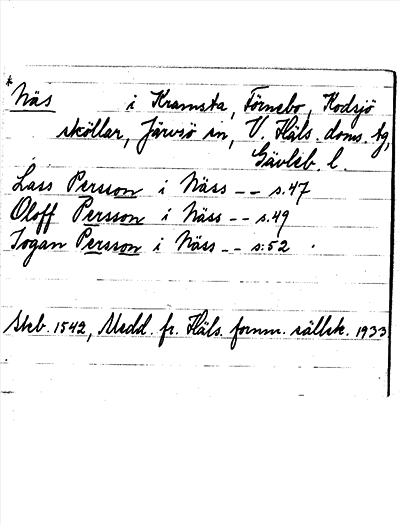 * Näs i Kramsta, Förnebo, Kodsjö
sköllar, Järvsö sn, V. Häls. doms. tg,
Gävleb. l.
Lass Persson i Näss -- s.47
Oloff Persson i Näss -- s.49
Jogan Persson i Näss -- s.52
Skb. 1542, Medd. fr. Häls. fornm. sällsk. 1933